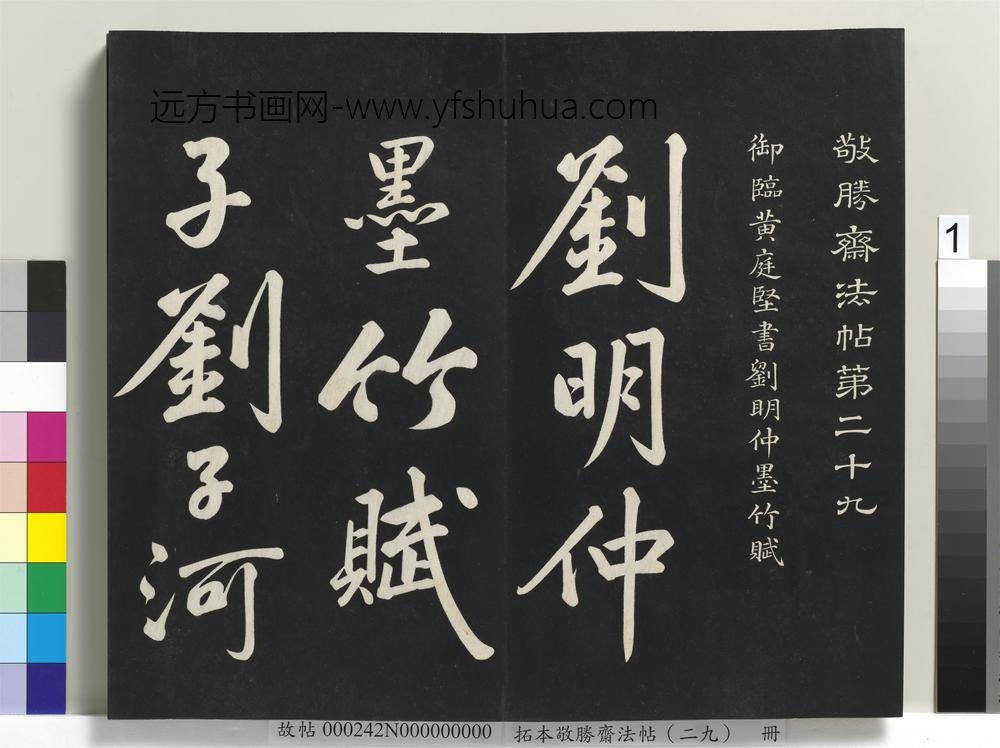 远方书画网-www.yfshuhua.com
敬勝齋法帖第二十九
御臨黄庭堅書劉明仲墨竹賦
劉明仲
墨竹賦
子劉子河
1
故帖 000242N000000000 拓本敬勝齋法帖（二九） 冊